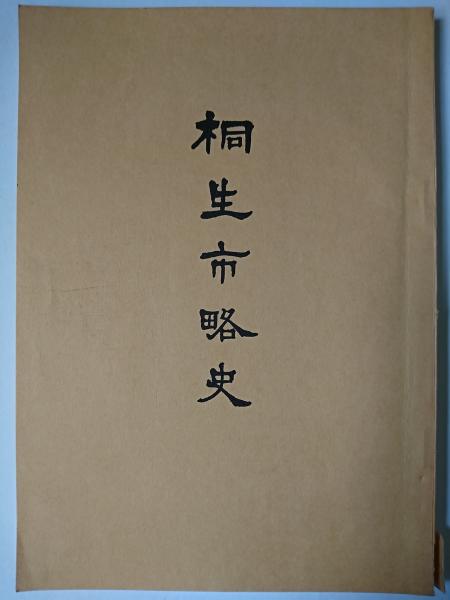 桐生市略史